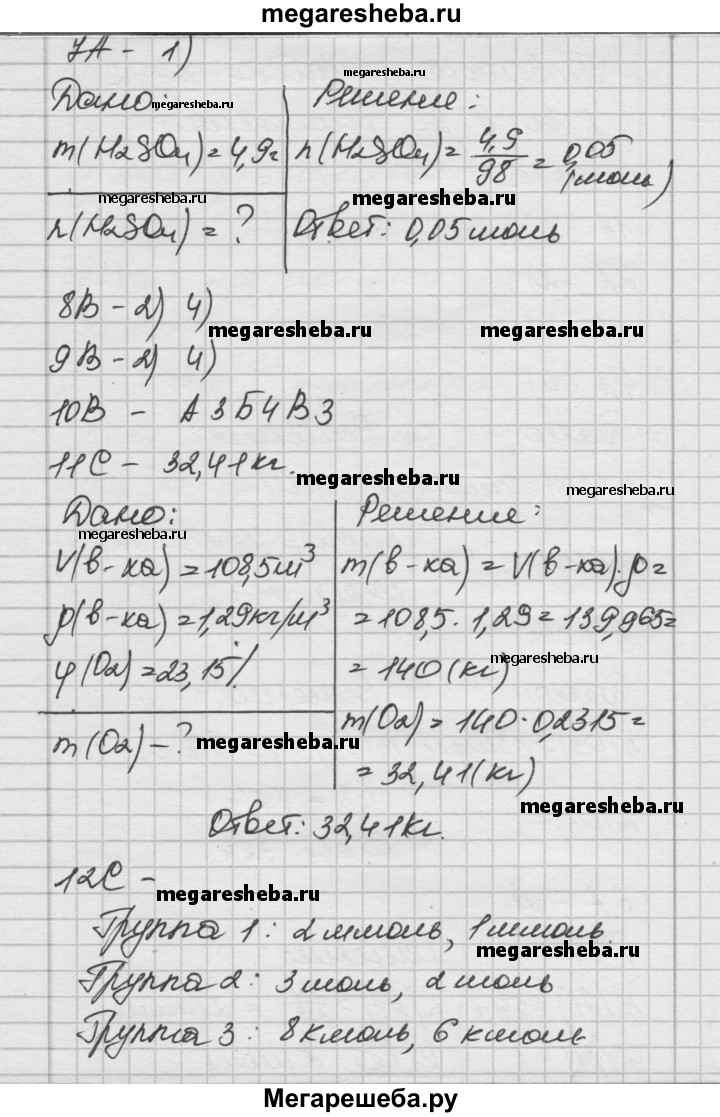 megaresheba.ru
7А - 1)
megaresheba.ru
Дано: Решение:
megaresheba.ru
m(H2SO4) = 4,9г n(H2SO4) = 4,9/98 = 0,05 (моль)
megaresheba.ru
n(H2SO4) = ? Ответ: 0,05 моль
8В - 2) 4)
megaresheba.ru megaresheba.ru
9В - 2) 4)
10В - А3Б4В3
11С - 32,41кг.
megaresheba.ru
megaresheba.ru
Дано: Решение:
megaresheba.ru
V(в-ха) = 108,5м³ m(в-ха) = V(в-ха)·ρ =
ρ(в-ха) = 1,29кг/м³ = 108,5 · 1,29 = 139,965 =
φ(O2) = 23,15% = 140 (кг)
megaresheba.ru
m(O2) - ? m(O2) = 140 · 0,2315 =
megaresheba.ru
= 32,41 (кг)
megaresheba.ru
Ответ: 32,41кг.
12С -
megaresheba.ru
Группа 1: 2 ммоль, 1 ммоль
megaresheba.ru
Группа 2: 3 моль, 2 моль
Группа 3: 8 кмоль, 6 кмоль
Мегарешеба.ру